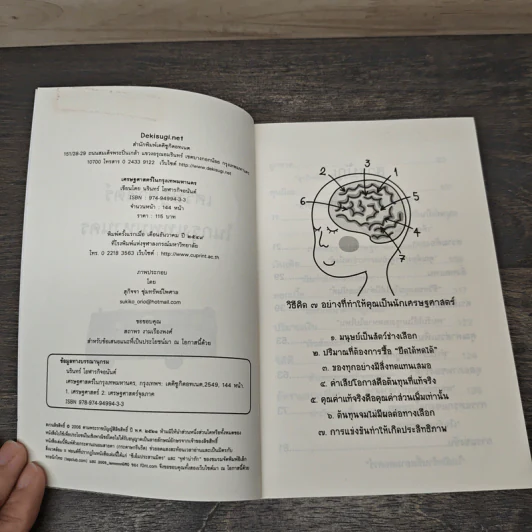 Dekisugi.net
สำนักพิมพ์เดคิซูกิดอทเนต
10700 โทรสาร 0 2433 9122 เว็บไซต์ http://www.dekisugi.net
เศรษฐศาสตร์ในกรุงเทพมหานคร
เขียนโดย นรินทร์ โอฬารกิจอนันต์
ISBN : 978-94994-3-3
จำนวนหน้า : 144 หน้า
ราคา : 115 บาท
พิมพ์ครั้งแรกเมื่อ เดือนธันวาคม ปี ๒๕๔๙
ที่โรงพิมพ์แห่งจุฬาลงกรณ์มหาวิทยาลัย
โทร. 0 2218 3563 เว็บไซต์ : http://www.cuprint.ac.th
ภาพประกอบ
โดย
สุกิจจา ชุ่มทรัพย์ไพศาล
sukiko_ono@hotmail.com
ขอขอบคุณ
สถาพร งามเรืองพงศ์
สำหรับข้อเสนอแนะที่เป็นประโยชน์มา ณ โอกาสนี้ด้วย
ข้อมูลทางบรรณานุกรม
นรินทร์ โอฬารกิจอนันต์
เศรษฐศาสตร์ในกรุงเทพมหานคร, กรุงเทพฯ. เดคิซูกิดอทเนต,2549, 144 หน้า.
1. เศรษฐศาสตร์ 2. เศรษฐศาสตร์จุลภาค
ISBN 978-974-94994-3-3
1
2
3
4
5
6
7
วิธีคิด ๗ อย่างที่ทำให้คุณเป็นนักเศรษฐศาสตร์
๑. มนุษย์เป็นสัตว์ช่างเลือก
๒. ปริมาณที่ต้องการซื้อ "ยืดได้หดได้"
๓. ของทุกอย่างมีสิ่งทดแทนเสมอ
๔. ค่าเสียโอกาสคือต้นทุนที่แท้จริง
๕. คุณค่าแท้จริงคือคุณค่าส่วนเพิ่มเท่านั้น
๖. ต้นทุนจมไม่มีผลต่อทางเลือก
๗. การแข่งขันทำให้เกิดประสิทธิภาพ